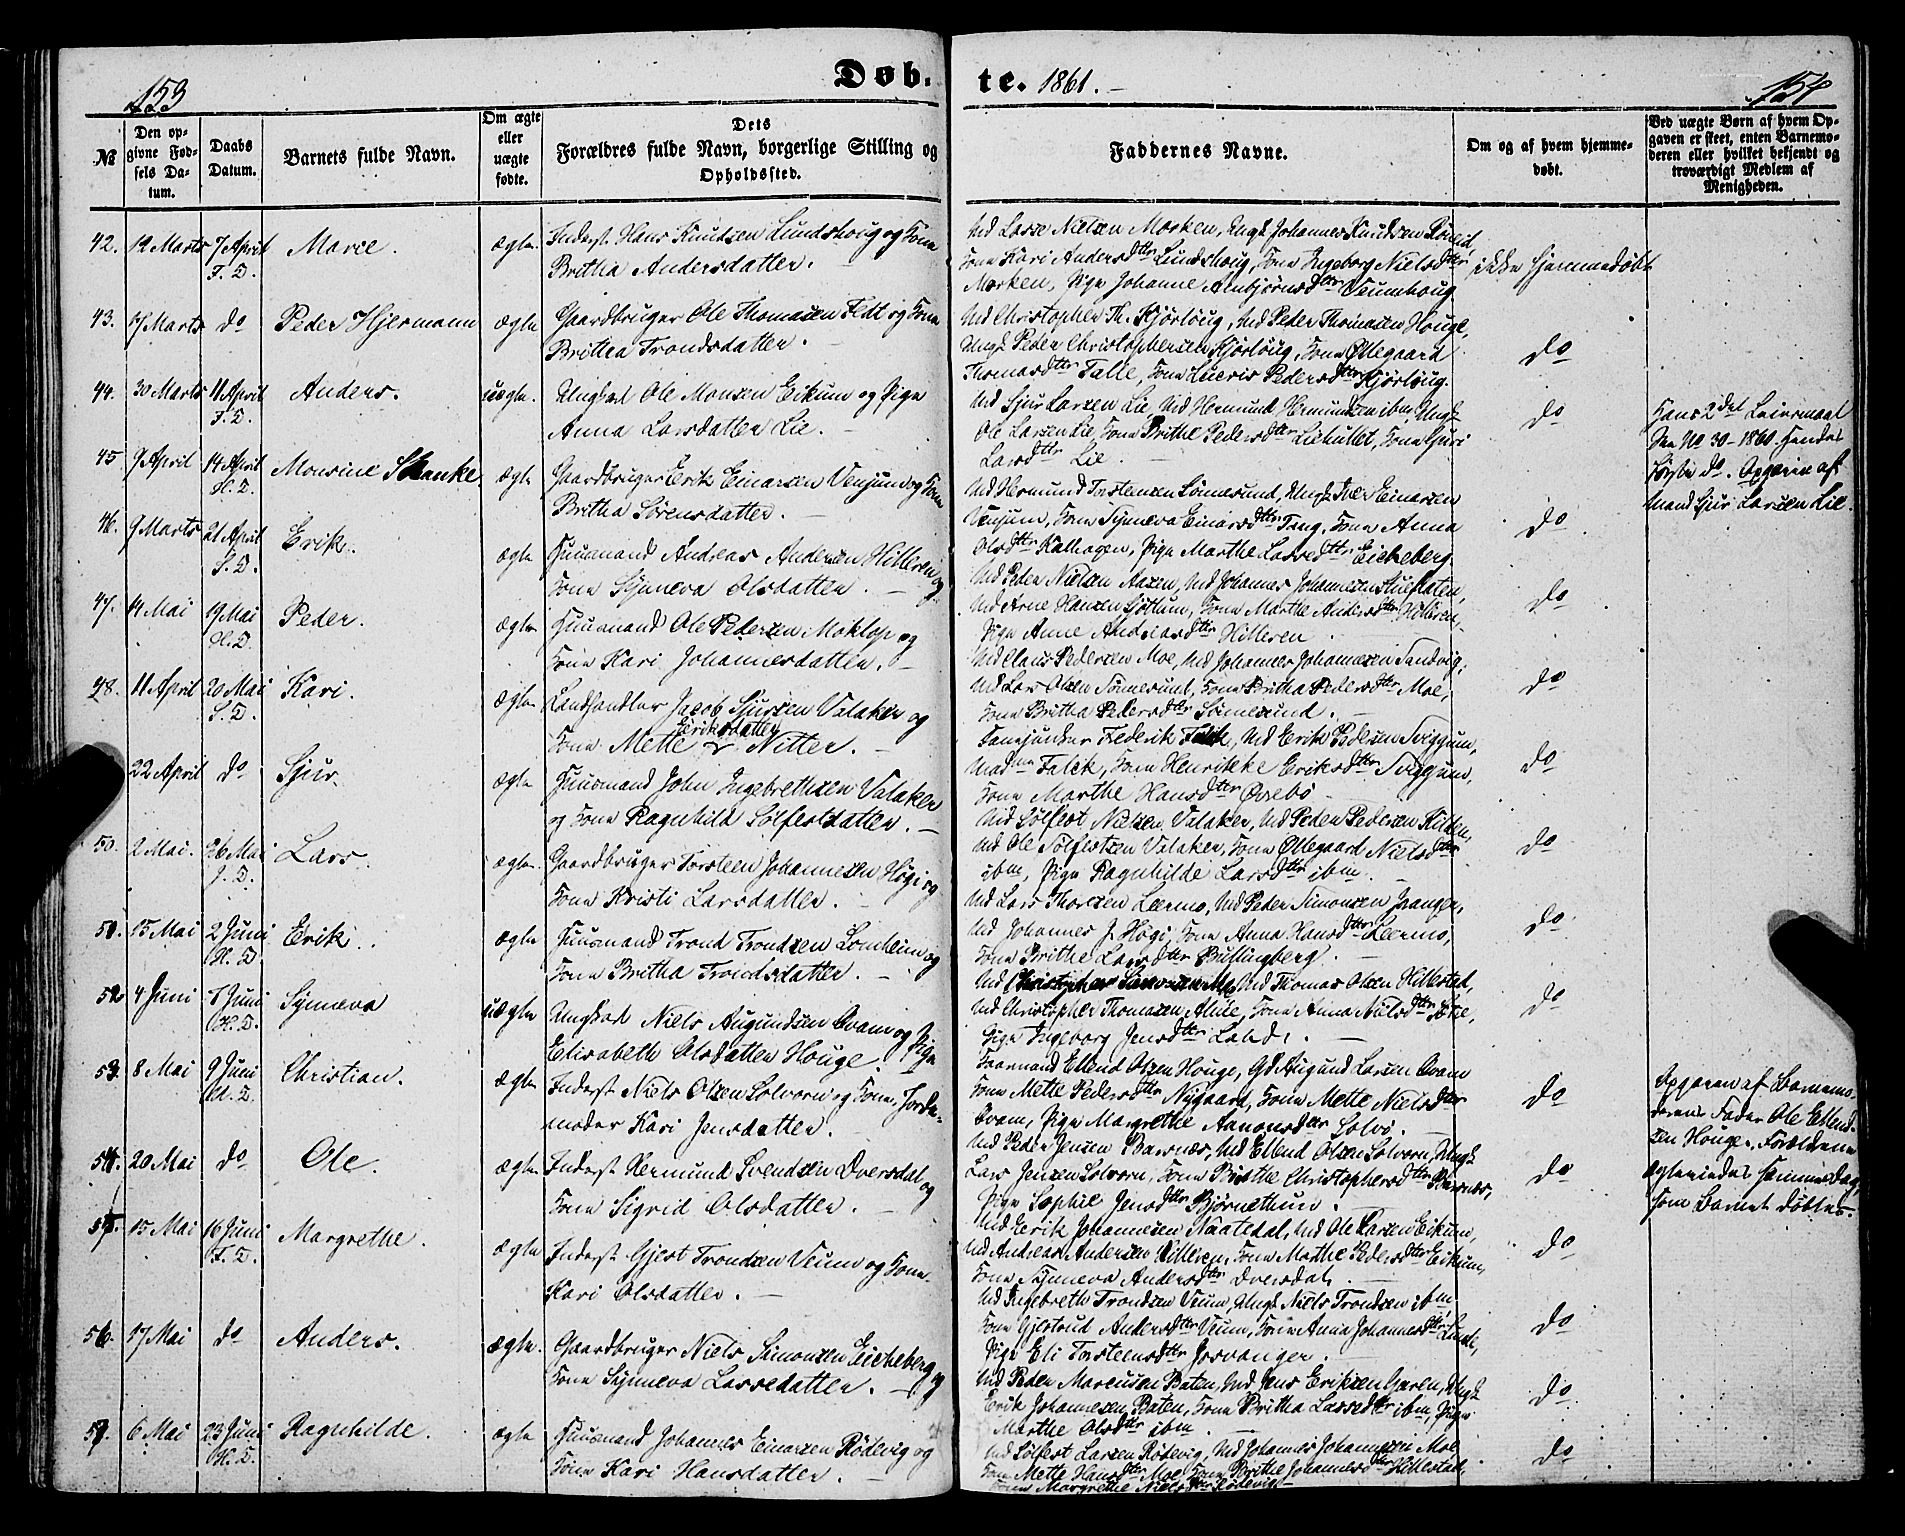 153
Døb.
te. 1861.
154
№
Den op-
givne Fød-
sels Da-
tum.
Daabs
Datum.
Barnets fulde Navn.
Om ægte
eller
uægte
fødte.
Dets
Forældres fulde Navn, borgerlige Stilling og
Opholdssted.
Faddernes Navne.
Om og af hvem hjemme-
døbt.
Ved uægte Børn af hvem Op-
gaven er skeet, enten Barnemo-
deren eller hvilket bekjendt og
troværdigt Medlem af
Menigheden.
42. 12 Marts 7 April Marie. ægte. Inderst Hans Knudsen Lundshoug og Kone
F. D. Brittha Andersdatter.
Ud Lasse Nielsen Morken, Ungk Johannes Knudsen
Kone Kari Andersdtter Lundshoug, Kone Ingeborg Nielsdtter
Morken, Pige Johanne Venumhoug
ikke hjemmedøbt
43. 17 Marts do Peder Hjermann ægte Gaardbruger Ole Thomasen Fett og Kone
Brittha Trondsdatter.
Ud Christopher Th. Kjørloug, Ud Peder Thomasen Houge,
Ungk Peder Christophersen Kjørloug, Kone Ollegaard
Thomasdtter Talle, Kone Lucris Pedersdtter Kjørloug.
do
44. 30 Marts 11 April Anders. uægte. Ungkarl Ole Monsen Eikum og Pige
F. D. Anna Larsdatter Lie.
Ud Sjur Larsen Lie, Ud Hermund Hermundsen ibm, Ungk
Ole Larsen Lie, Kone Brithe Pedersdtter Liehullet, Kone Guri
Larsdtter Lie.
do
Hans 2det Leiermaal
See No 30-1860. Hendes
første do. Opgaven af
Mand Sjur Larsen Lie.
45 9 April 14 April Monsine Skanke ægte Gaardbruger Erik Einarsen Venjum og Kone
H. D. Britha Sørensdatter.
Ud Hermund Torstensen Sønnesund, Ungk Iver Einarsen
Venjum, Kone Synneva Einarsdtter Tang, Kone Anna
Olsdtter Kalhagen, Pige Marthe Lassedtter Eickeberg.
do
46. 9 Marts 21 April Erik. ægte Huusmand Andreas Andersen Hilleren og
S. D. Kone Synneva Olsdatter.
Ud Peder Nielsen Aasen, Ud Johannes Johannesen
Ud Arne Hansen Kone Marthe Andersdtter Hilleren,
Pige Anne Andreasdtter Hilleren
do
47. 14 Mai 19 Mai Peder. ægte Huusmand Ole Pedersen Moklop og
H. D. Kone Kari Johannesdatter.
Ud Claus Pedersen Moe, Ud Johannes Johannesen Sandvig,
Ud Lars Olsen Sønnesund, Kone Britha Pedersdtter Moe,
Kone Britha Pedersdtter Sønnesund.
do
48. 11 April 20 Mai Kari. ægte Landhandler Jacob Sjursen Valaker og
S. D. Kone Mette Eriksdatter Nitter.
Fanejunker Frederik Falck, Ud Erik Pedersen Sviggum,
Madme Falck, Kone Henrikke Eriksdtter Sviggum,
Kone Marthe Hansdtter Øvrebø
do
22 April do Sjur. ægte Huusmand John Ingebrethsen Valaker
og Kone Ragnhild Sølfestsdatter.
Ud Sølfest Nielsen Valaker, Ud Peder Pedersen
Ud Ole Sølfestsen Valaker, Kone Ollegaard Nielsdtter
ibm, Pige Ragnhilde Larsdtter ibm.
do
50. 2 Mai. 26 Mai Lars. ægte Gaardbruger Torsteen Johannesen Høgi og
J. D. Kone Kristi Larsdatter.
Ud Lars Thoresen Leermo, Ud Peder Simonsen
Ud Johannes J. Høgi, Kone Anna Hansdtter Leermo,
Kone Brithe Larsdtter Bullingberg.
do
51. 15 Mai 2 Juni Erik. ægte Huusmand Trond Trondsen Lomheim og
H. D. Kone Britha Trondsdatter.
Ud Ud Thomas Olsen Hillestad,
Ud Christopher Thomasen Kone Anna Nielsdtter
Pige Ingeborg Jensdtter
do
52 4 Juni 7 Juni Synneva uægte Ungkarl Niels Augundsen Qvam og Pige
H. D. Elisabeth Olsdatter Houge.
Faarmand Ellend Olsen Houge, Gd Augund Larsen Qvam
Kone Mette Pedersdtter Nygaard, Kone Mette Nielsdtter
Qvam, Pige Margrethe Aanonsdtter Solvo.
do
Opgaven af Barnemo-
derens Fader Ole Ellend-
sen Houge. Forældrene
ægteviedes samme Dag
som Barnet døbtes.
53. 8 Mai 9 Juni Christian. ægte Inderst Niels Olsen Solvorn og Kone, Jorde-
U. D. moder Kari Jensdatter.
Ud Peder Jensen Barsnes, Ud Ellend Olsen Solvorn, Ungk
Lars Jensen Solvorn, Kone Birthe Christophersdtter Barsnes,
Pige Sophie Jensdtter Bjørnethun.
do
54. 20 Mai do Ole. ægte Inderst Hermund Svendsen Dversdal og
Kone Sigrid Olsdatter.
Ud Erik Johannesen Naatedal, Ud Ole Larsen Eikum,
Ud Andreas Andersen Hilleren, Kone Marthe Pedersdtter Eikum,
Kone Synneva Andersdtter Dversdal.
do
55. 15 Mai 16 Juni Margrethe. ægte Inderst Gjert Trondsen Veum og Kone
F. D. Kari Olsdatter.
Ud Ingebreth Trondsen Veum, Ungk Niels Trondsen ibm,
Kone Gjertrud Andersdtter Veum, Kone Anna Johannesdtter
Pige Eli Torsteensdtter Josvanger.
do
56. 17 Mai do Anders. ægte. Gaardbruger Niels Simonsen Eickeberg og
Kone Synneva Lassedatter.
Ud Peder Marcusen Baten, Ud Jens Eriksen Gjeren, Ungk
Erik Johannesen Baten, Kone Britha Lassedtter ibm, Pige
Marthe Olsdtter ibm.
do
57. 6 Mai 23 Juni Ragnhilde. ægte Huusmand Johannes Einarsen Rødevig og
H. D. Kone Kari Hansdatter.
Ud Sølfest Larsen Rødevig, Ud Johannes Johannesen Moe
Kone Mette Hansdtter Moe, Kone Brithe Johannesdtter Hillestad,
Kone Margrethe Nielsdtter Rødevig
do